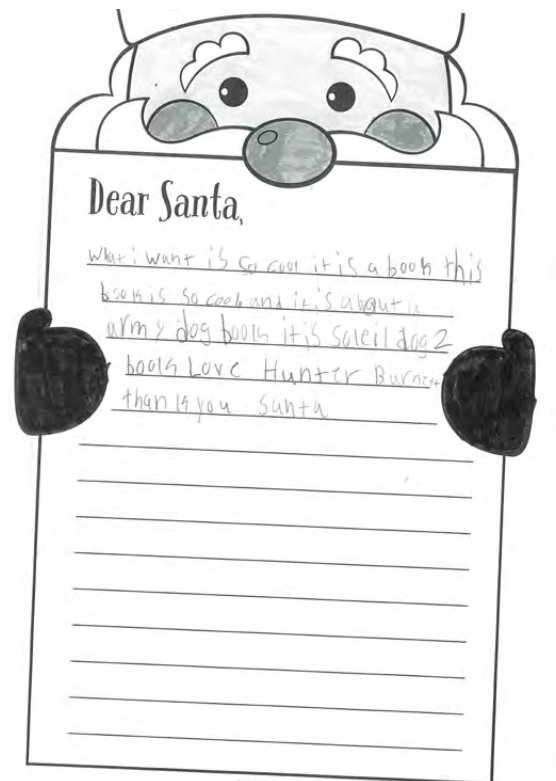 Dear Santa,
What i want is so cool it is a book this
book is so cool and it is about a
army dog book it is soleil dog 2
book Love Hunter
thank you Santa